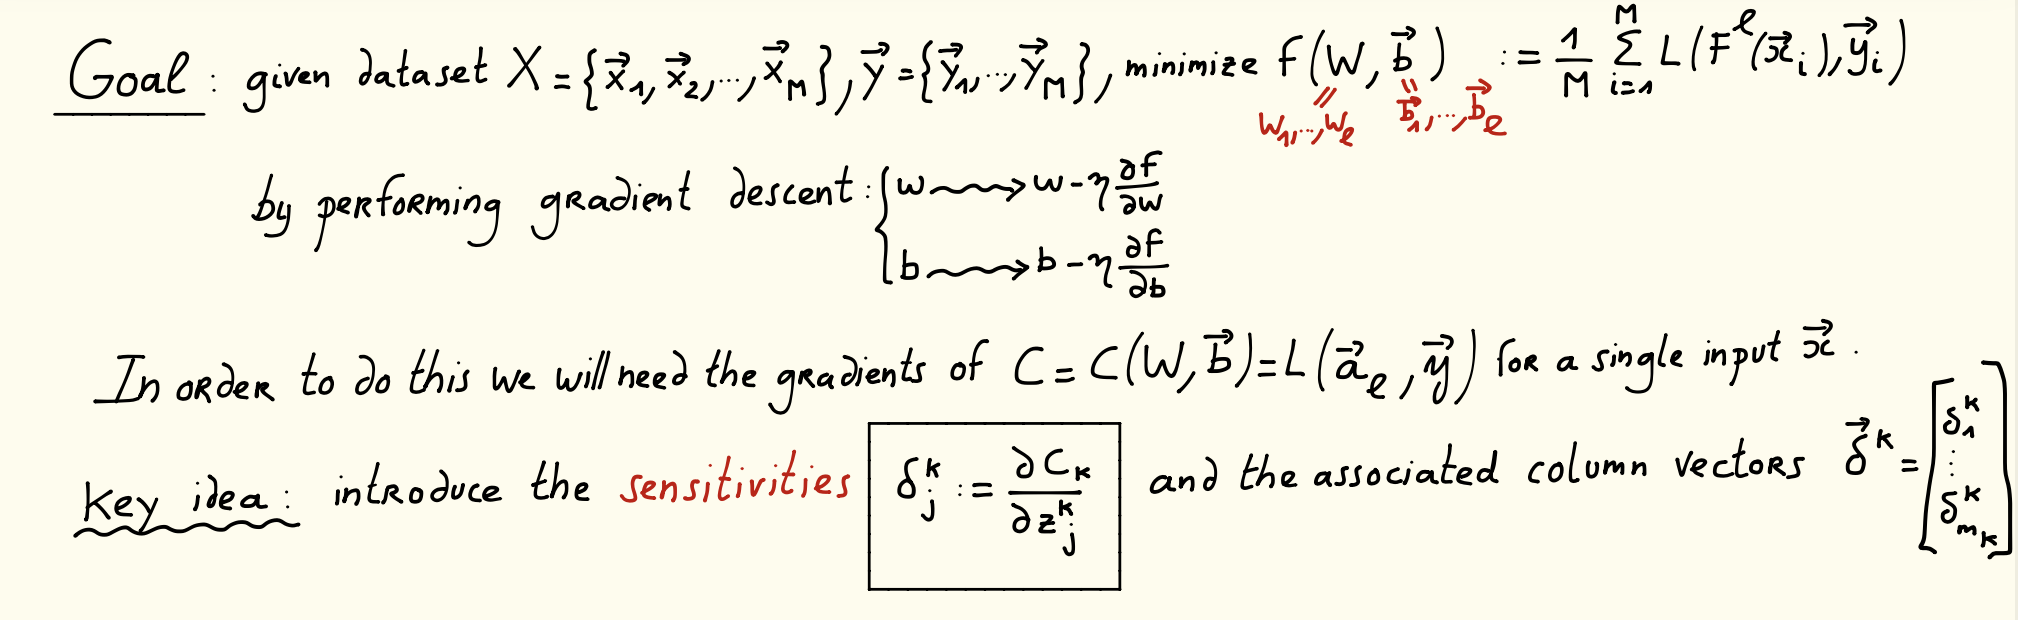 Goal : given dataset X = {x⃗₁, x⃗₂, ..., x⃗_M}, y⃗ = {y⃗₁, ..., y⃗_M}, minimize f(W, b⃗) := 1/M Σ_{i=1}^{M} L(F^ℓ(x⃗_i), y⃗_i)
W₁, ..., W_ℓ b⃗₁, ..., b⃗_ℓ
by performing gradient descent : { w ⟿ w - η ∂f/∂w
b ⟿ b - η ∂f/∂b
In order to do this we will need the gradients of C = C(W, b⃗) = L(a⃗_ℓ, y⃗) for a single input x⃗ .
Key idea : introduce the sensitivities δ_j^k := ∂C_k/∂z_j^k and the associated column vectors δ⃗^k = [δ_1^k ⋮ δ_{m_k}^k]